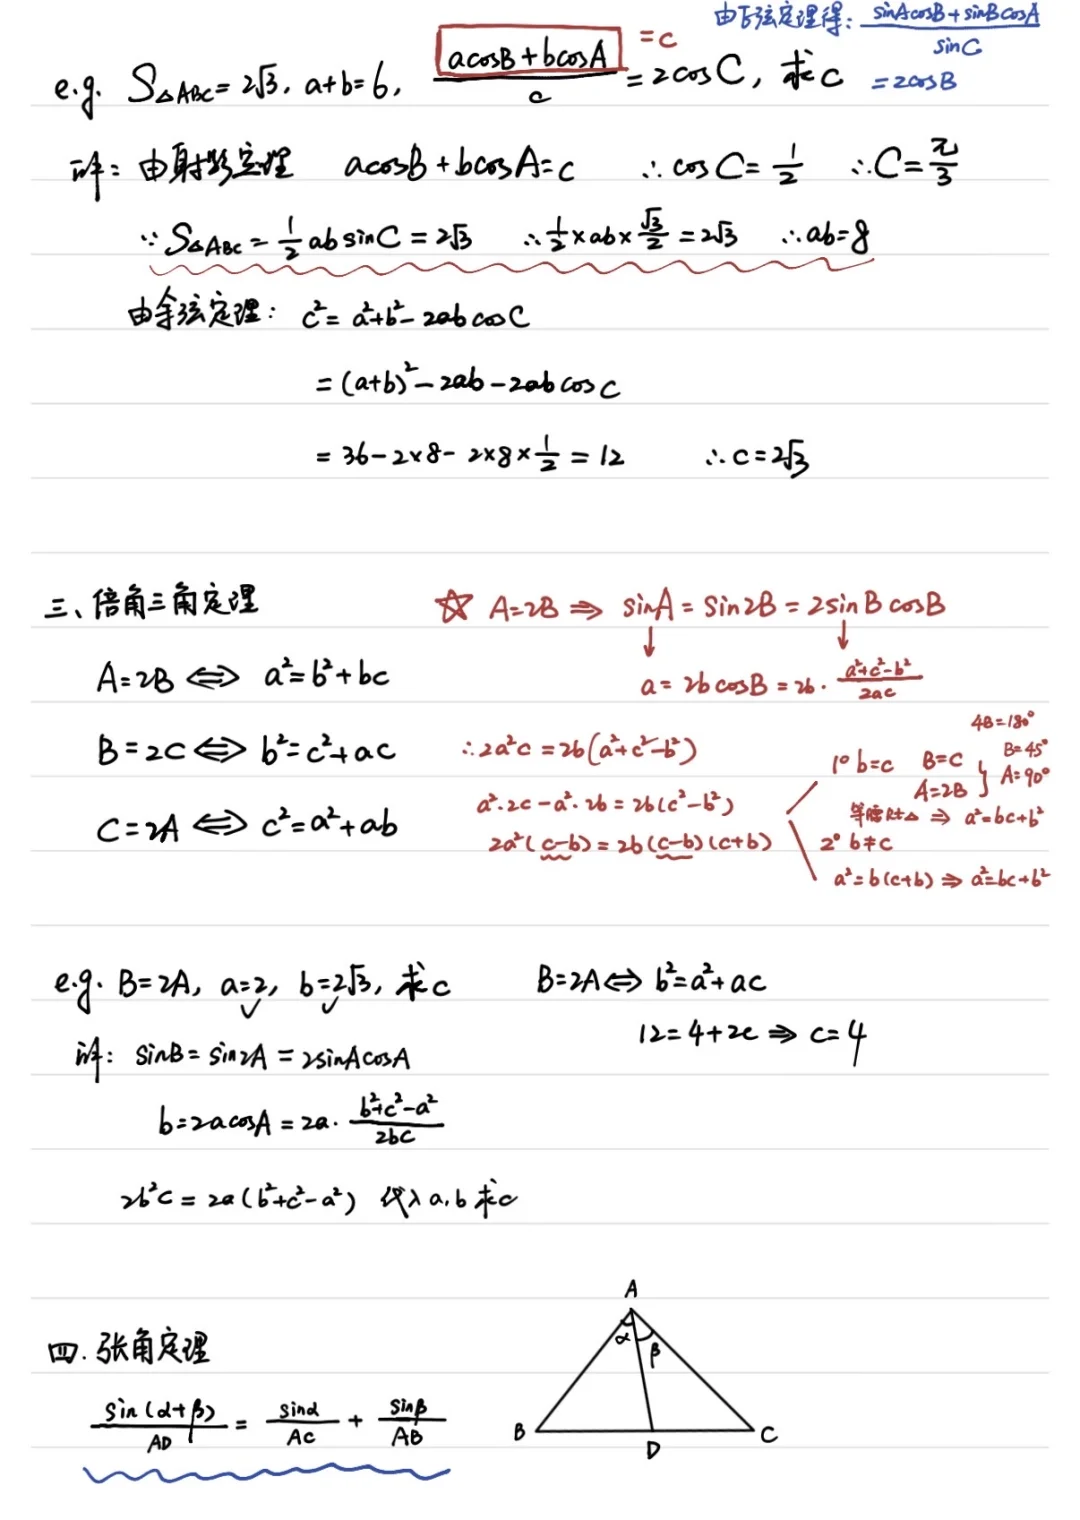 由正弦定理得: (sinAcosB+sinBcosA)/sinC
= 2cosB
e.g. S△ABC = 2√3, a+b=6, (acosB+bcosA)/c = 2cosC, 求c
= c
解: 由射影定理 acosB+bcosA=c ∴cosC=1/2 ∴C=π/3
∵S△ABC = 1/2 ab sinC = 2√3 ∴1/2×ab×√3/2 = 2√3 ∴ab=8
由余弦定理: c²= a²+b²-2abcosC
= (a+b)²-2ab-2abcosC
= 36-2×8-2×8×1/2 = 12 ∴c=2√3
三、倍角三角定理
A=2B ⇔ a²=b²+bc
B=2C ⇔ b²=c²+ac
C=2A ⇔ c²=a²+ab
☆ A=2B ⇒ sinA = sin2B = 2sinBcosB
↓ ↓
a = 2bcosB = 2b·(a²+c²-b²)/2ac
∴2a²c = 2b(a²+c²-b²)
a²·2c-a²·2b = 2b(c²-b²)
2a²(c-b) = 2b(c-b)(c+b)
1° b=c B=C
A=2B
4B=180°
B=45°
A=90°
等腰Rt△ ⇒ a²=bc+b²
2° b≠c
a²=b(c+b) ⇒ a²=bc+b²
e.g. B=2A, a=2, b=2√3, 求c
解: sinB = sin2A = 2sinAcosA
b=2acosA = 2a·(b²+c²-a²)/2bc
2b²c = 2a(b²+c²-a²) 代入a,b求c
B=2A ⇔ b²=a²+ac
12=4+2c ⇒ c=4
四. 张角定理
sin(α+β)/AD = sinα/AC + sinβ/AB
A
α
β
B
D
C